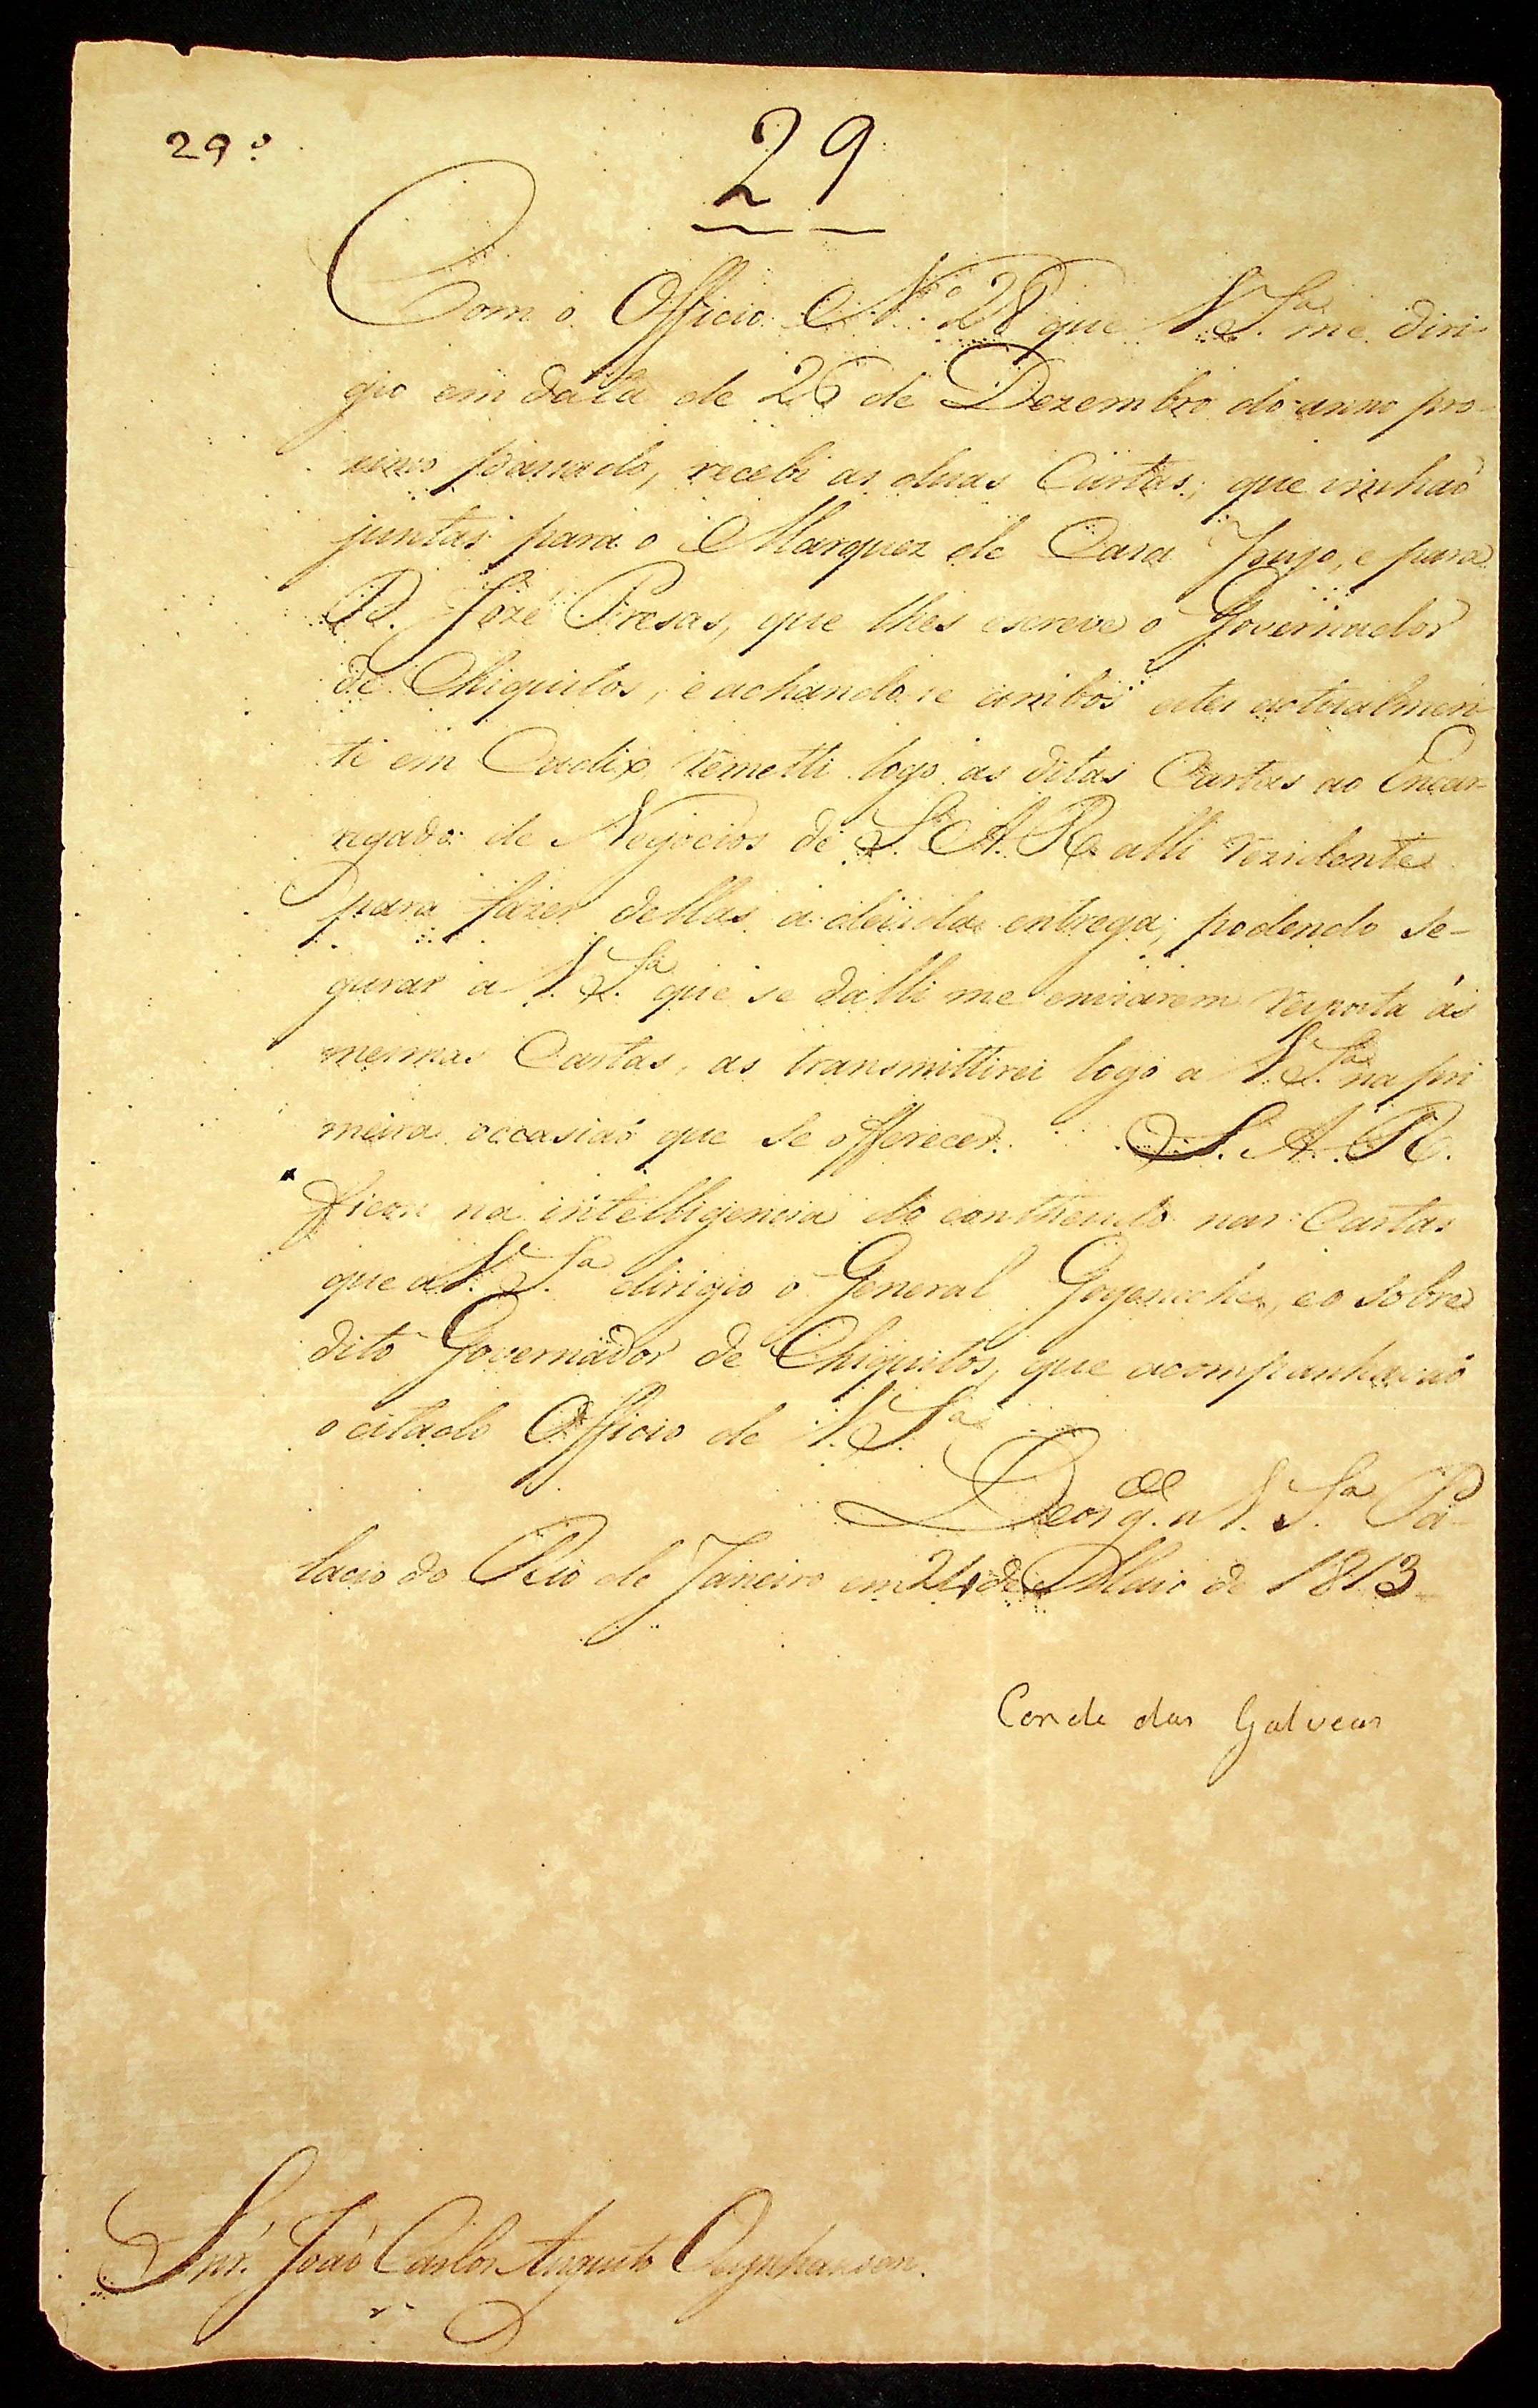 29º
29
Com o Officio Nº 28 que V. Sª me diri-
gio em data de 26 de Dezembro do anno pro-
ximo passado, recebi as duas Cartas, que vinhaõ
juntas para o Marquez de Casa Irujo, e para
D. Jozé Presas, que lhes escreve o Governador
de Chiquitos, e achando se ambos estes actualmen-
te em Cadix remetti logo as ditas Cartas ao Encar-
regado de Negocios de S. A. R. alli rezidente
para fazer dellas a devida entrega; podendo se-
gurar a V. Sª que se dalli me enviarem resposta ás
mesmas Cartas, as transmittirei logo a V. Sª na pri
meira occasiaõ que se offerecer. S. A. R.
Ficou na intelligencia do contheudo nas Cartas
que a V. Sª dirigio o General Goyeneche, e o sobre
dito Governador de Chiquitos, que acompanhavaõ
o citado Officio de V. Sª
Deos gde a V. Sª Pa-
lacio do Rio de Janeiro em 24 de Maio de 1813
Conde das Galveas
Snr. Joaõ Carlos Augusto Oeynhausen.